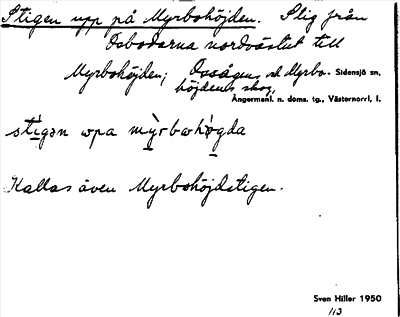 Stigen upp på Myrbohöjden. Stig från
Osbodarna nordvästut till
Myrbohöjden; Ossågens och Myrbo- Sidensjö sn,
höjdens skog,
Ångermanl. n. doms. tg., Västernorrl. l.
stigən upa myrbohøgda
Kallas även Myrbohöjdstigen.
Sven Hiller 1950
113